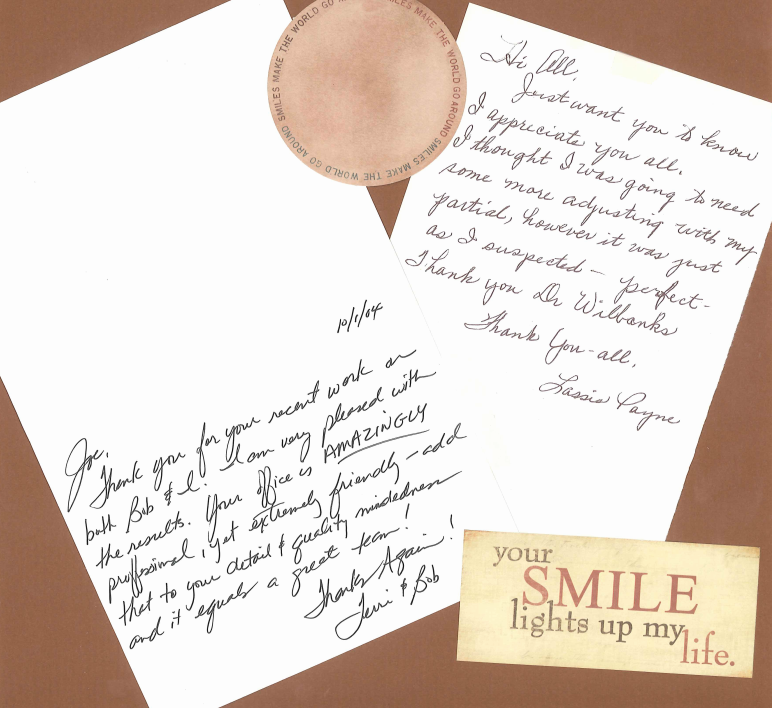 SMILES MAKE THE WORLD GO AROUND SMILES MAKE THE WORLD GO AROUND SMILES MAKE THE WORLD GO
Hi All,
Just want you to know
I appreciate you all.
I thought I was going to need
some more adjusting with my
partial, however it was just
as I suspected – perfect-
Thank you Dr Wilbanks
Thank You-all,
Lassie Payne
10/1/04
Joe,
Thank you for your recent work on
both Bob & I. I am very pleased with
the results. Your office is AMAZINGLY
professional, yet extremely friendly – add
that to your detail & quality mindedness
and it equals a great team!
Thanks Again!
Terri & Bob
your
SMILE
lights up my
life.